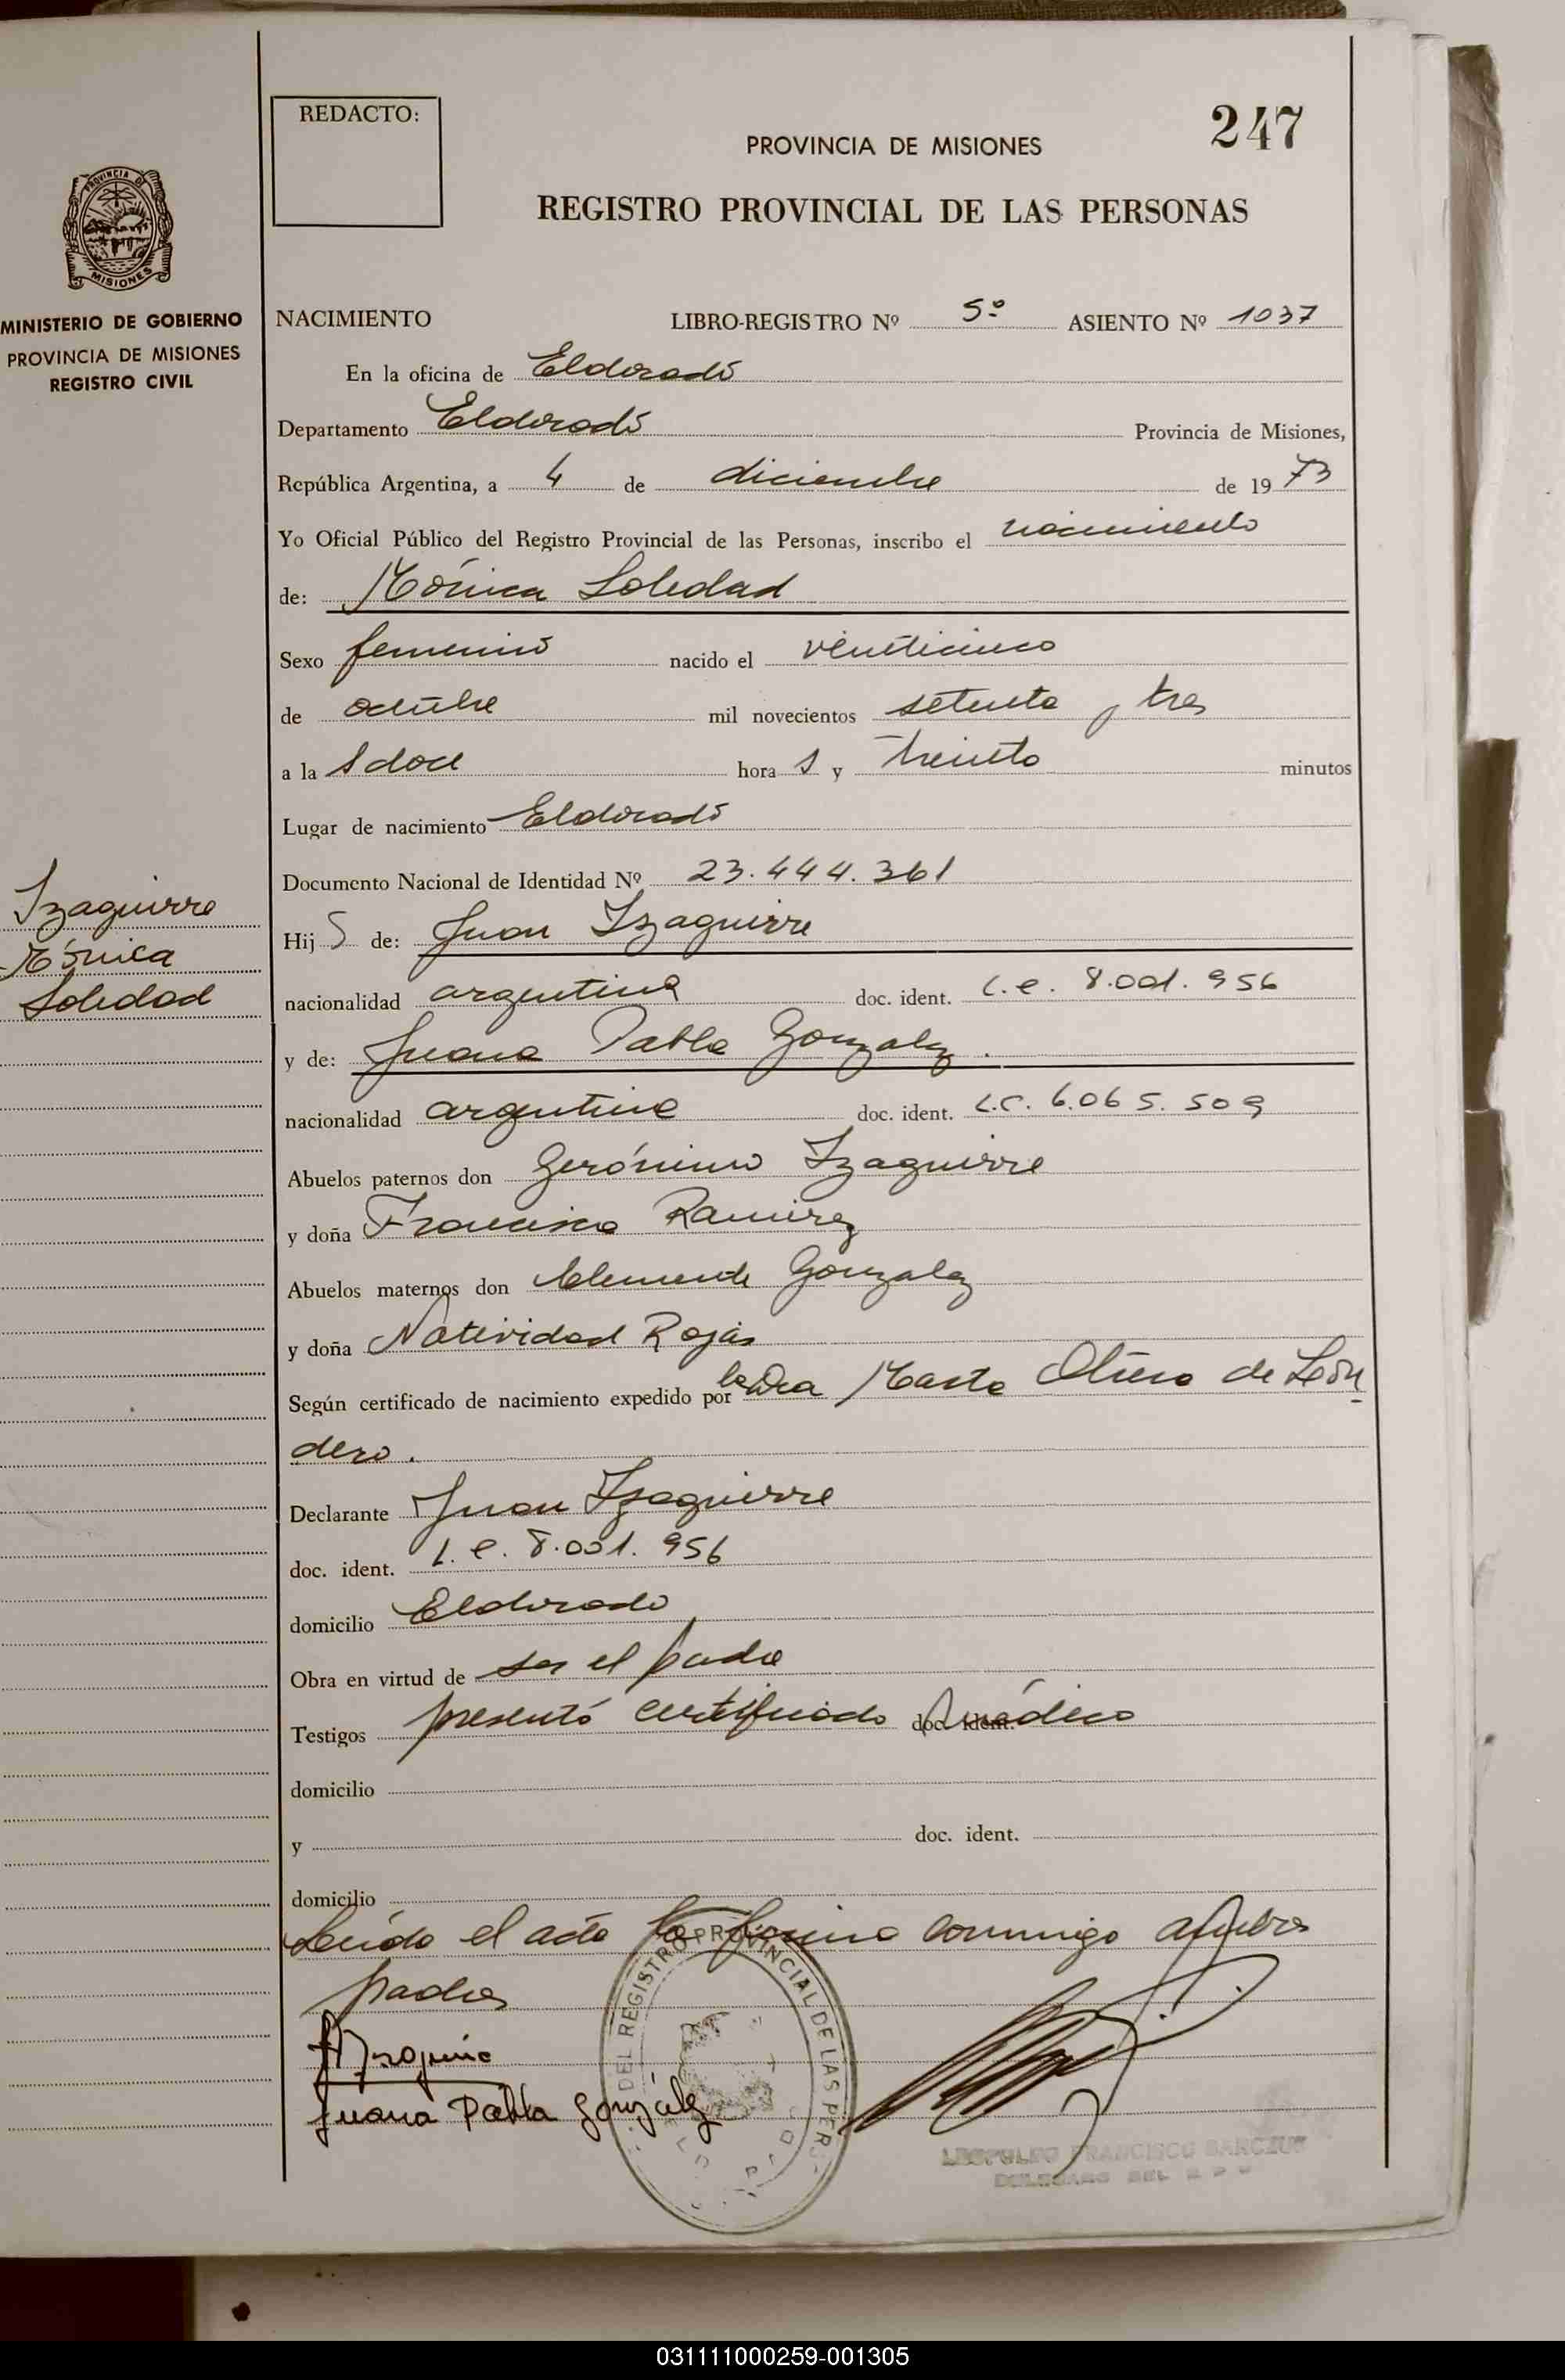 247
REDACTO:
PROVINCIA DE MISIONES
REGISTRO PROVINCIAL DE LAS PERSONAS
PROVINCIA DE
MISIONES
MINISTERIO DE GOBIERNO
PROVINCIA DE MISIONES
REGISTRO CIVIL
NACIMIENTO LIBRO-REGISTRO Nº 5º ASIENTO Nº 1037
En la oficina de Eldorado
Departamento Eldorado Provincia de Misiones,
República Argentina, a 4 de diciembre de 1973
Yo Oficial Público del Registro Provincial de las Personas, inscribo el nacimiento
de: Mónica Soledad
Sexo femenino nacido el veinticinco
de octubre mil novecientos setenta y tres
a la s doce hora s y treinta minutos
Lugar de nacimiento Eldorado
Documento Nacional de Identidad Nº 23.444.361
Izaguirre
Mónica
Soledad
Hij de: Juan Izaguirre
nacionalidad argentina doc. ident. L.e. 8.001.956
y de: Juana Pabla Gonzalez.
nacionalidad argentina doc. ident. L.C. 6.065.509
Abuelos paternos don Gerónimo Izaguirre
y doña Francisca Ramirez
Abuelos maternos don Clemente Gonzalez
y doña Natividad Rojas
Según certificado de nacimiento expedido por la Dra Marta Otero de León
dero.
Declarante Juan Izaguirre
doc. ident. L.e. 8.001.956
domicilio Eldorado
Obra en virtud de ser el padre
Testigos presentó certificado doc. ident. médico
domicilio
y doc. ident.
domicilio
Leída el acta la firma conmigo ambos
padres
Izaguirre
Juana Pabla González
DEL REGISTRO PROVINCIAL DE LAS PER
LEOPOLDO FRANCISCO
DELEGADO DEL R P P
031111000259-001305